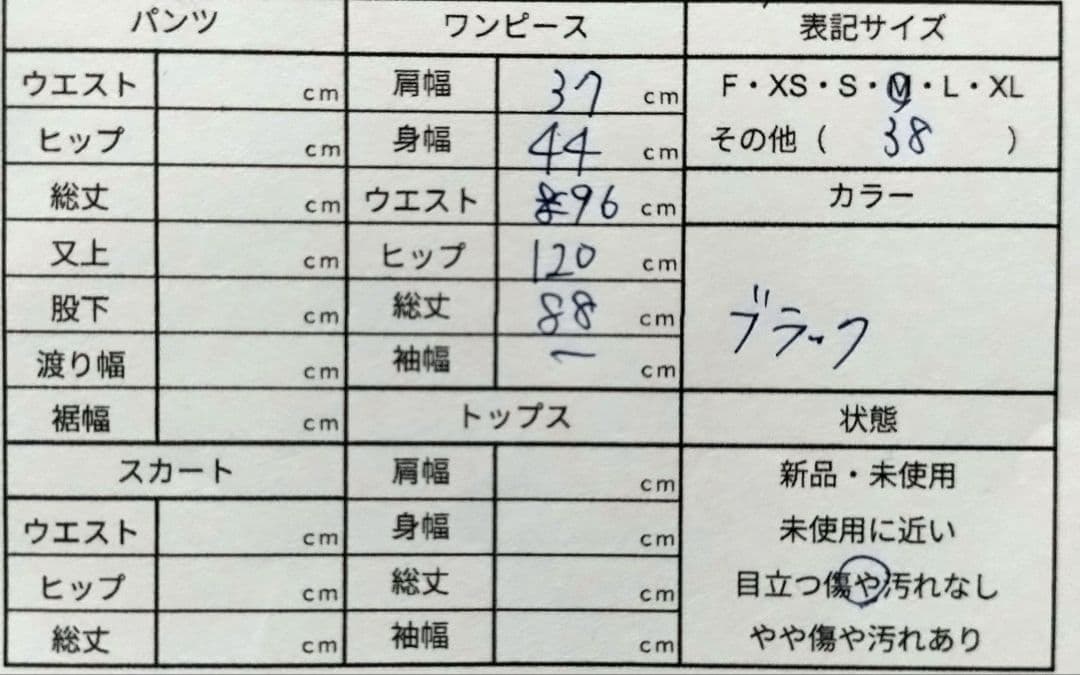 パンツ ワンピース 表記サイズ
ウエスト cm 肩幅 37 cm F・XS・S・M・L・XL
ヒップ cm 身幅 44 cm その他（ 38 ）
総丈 cm ウエスト 96 cm カラー
又上 cm ヒップ 120 cm
股下 cm 総丈 88 cm ブラック
渡り幅 cm 袖幅 ー cm
裾幅 cm トップス 状態
スカート 肩幅 cm 新品・未使用
ウエスト cm 身幅 cm 未使用に近い
ヒップ cm 総丈 cm 目立つ傷や汚れなし
総丈 cm 袖幅 cm やや傷や汚れあり